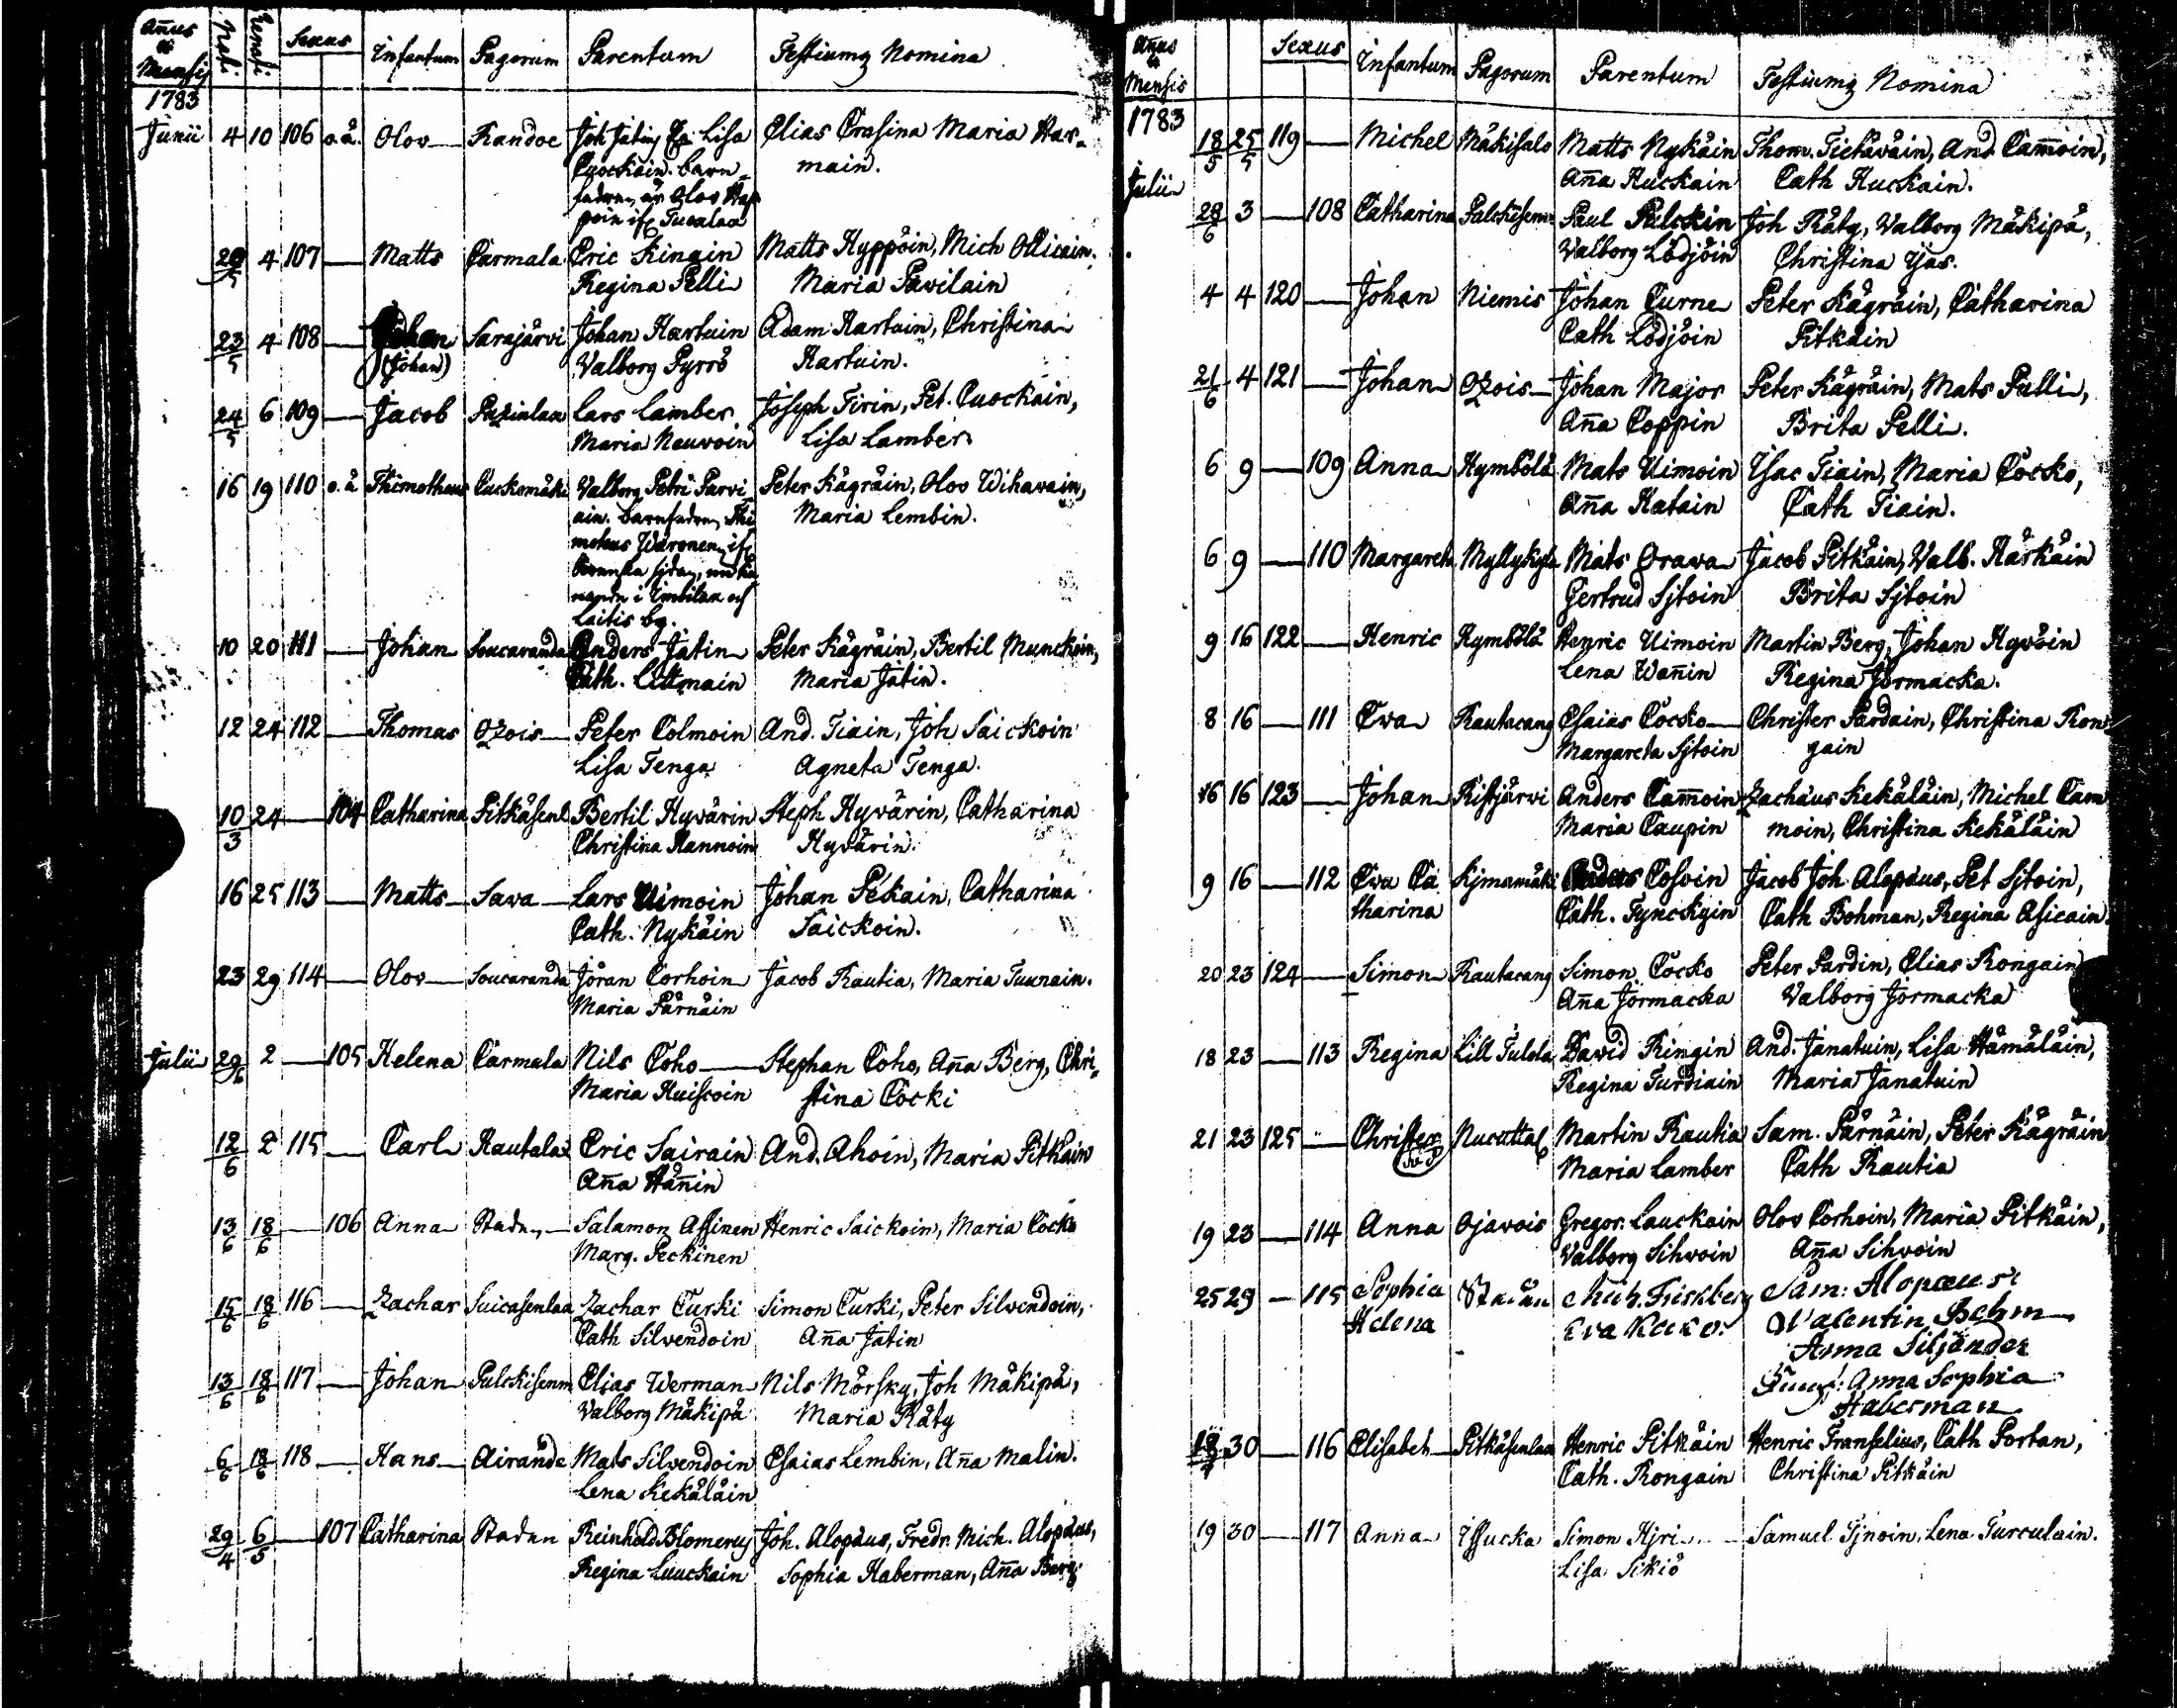 Añus & Mensis Nati Renati Sexus Infantum Pagorum Parentum Testiumq Nomina
1783
Junii 4 10 106 o.ä. Olov Randoe Joh Jatin Lisa Elias Crusina Maria Har-
Cuockain. barn- main.
fadren är Olov Hap
poin ifr Tucalaa
20/5 4 107 Matts Carmala Eric Kinain Matts Hyppöin, Mich Ollicain.
Regina Pelli Maria Pawilain
23/5 4 108 Johan Sarajärvi Johan Hartuin Adam Hartuin, Christina
(Johan) Valborg Pyrrö Hartuin.
24/5 6 109 Jacob Puzinlaa Lars Lamber Joseph Tirin, Pet. Cuockain,
Maria Neuvoin Lisa Lamber
16 19 110 o.ä Thimotheus Cuckomäki Valborg Petri Parvi Peter Kägräin, Olov Wihavain,
ain. barnfadren Thi Maria Lembin.
motheus Waronen ifr
nanrn i Imbilax och
Laitis by.
10 20 111 Johan Soucaranda Anders Jatin Peter Kägräin, Bertil Munckoin,
Cath. Littmain Maria Jatin.
12 24 112 Thomas Ozois Peter Colmoin And. Tiain, Joh Saickoin
Lisa Tenga Agneta Tenga.
10/3 24 104 Catharina Pitkäsenl Bertil Hyvärin Steph Hyvärin, Catharina
Christina Hannoin Hyvärin.
16 25 113 Matts Sava Lars Uimoin Johan Pekain, Catharina
Cath. Nykäin Saickoin.
23 29 114 Olov Soucaranda Jöran Corhoin Jacob Rautia, Maria Tuunain.
Maria Pärnäin
Julii 29/6 2 105 Helena Carmala Nils Coho Stephan Coho, Aña Berg, Chri,
Maria Huiscoin stina Cocki
12/6 2 115 Carl Rautalax Eric Sairain And. Ahoin, Maria Pitkäin
Aña Häñin
13/6 18/6 106 Anna Staden Salamon Assinen Henric Saickoin, Maria Cocko
Marg. Peckinen
15/6 18/6 116 Zachar Suicasenlaa Zachar Curki Simon Curki, Peter Silvendoin,
Cath Silvendoin Aña Jatin
13/6 18/6 117 Johan Pulckisenm Elias Werman Nils Mörsky, Joh Mäkipä,
Valborg Mäkipä Maria Räty
6/6 18/6 118 Hans Airanda Mats Silvendoin Esaias Lembin, Aña Malin.
Lena Kekäläin
29/4 6/5 107 Catharina Staden Reinhold Blomerus Joh. Alopäus, Fredr. Mich. Alopäus,
Regina Luuckain Sophia Haberman, Aña Berg.
Añus & Mensis Sexus Infantum Pagorum Parentum Testiumq Nomina
1783
18/5 25/5 119 Michel Mäkisalo Matts Nykäin Thom. Tickäväin, And. Cam̃oin,
Aña Huckain Cath Huckain.
Julii
28/6 3 108 Catharina Pulckisenm Paul Pulckin Joh Räty, Valborg Mäkipä,
Valborg Lödjöin Christina Yas.
4 4 120 Johan Niemis Johan Turne Peter Kägräin, Catharina
Cath Lödjöin Pitkäin
21/6 4 121 Johan Ozois Johan Major Peter Kägräin, Mats Pulli,
Aña Coppin Brita Pelli.
6 9 109 Anna Hymbölä Mats Uimoin Isac Tiain, Maria Cocko,
Aña Hatain Cath Tiain.
6 9 110 Margareta Myllykylä Mats Orava Jacob Pitkäin, Valb. Härkäin
Gertrud Sjtoin Brita Sjtoin
9 16 122 Henric Hymbölä Henric Uimoin Martin Berg, Johan Hyvöin
Lena Wañin Regina Jormacka.
8 16 111 Eva Rautacang Esaias Cocko Christer Pardain, Christina Ron-
Margareta Sjtoin gain
16 16 123 Johan Ristjärvi Anders Cam̃oin Zachäus Kekäläin, Michel Cam
Maria Caupin moin, Christina Kekäläin
9 16 112 Eva Ca Kjmamäki Anders Cosoin Jacob Joh Alopäus, Pet Sjtoin,
tharina Cath. Tynckyin Cath Bohman, Regina Asicain
20 23 124 Simon Rautacang Simon Cocko Peter Pardin, Elias Rongain
Aña Jormacka Valborg Jormacka
18 23 113 Regina Lill Tulola David Ringin And. Janatuin, Lisa Hämäläin,
Regina Turdiain Maria Janatuin
21 23 125 Christer Nucuttal Martin Rautia Sam. Pärnäin, Peter Kägräin
Maria Lamber Cath Rautia
19 23 114 Anna Ojavois Gregor. Lauckain Olov Corhoin, Maria Pitkäin,
Valborg Sihvoin Aña Sihvoin
25 29 115 Sophia Staden Mich. Friskberg Sam: Alopæus
Helena Eva Kocko. Valentin Behm
Anna Siljander
Anna Sophia
Haberman
18/7 30 116 Elisabet Pitkäsenlaa Henric Pitkäin Henric Franselius, Cath Portan,
Cath. Rongain Christina Pitkäin
19 30 117 Anna Issucka Simon Hjri Samuel Tjnoin, Lena Turculain.
Lisa Sikiö